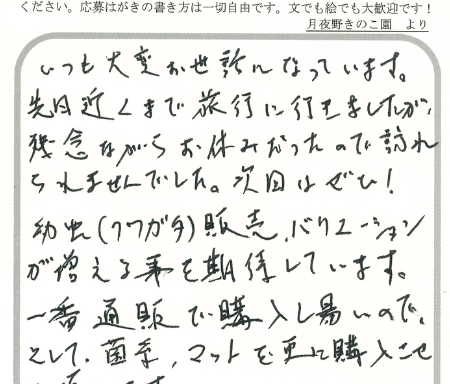 ください。応募はがきの書き方は一切自由です。文でも絵でも大歓迎です！
月夜野きのこ園　より
いつも大変お世話になっています。
先日近くまで旅行に行きましたが、
残念ながらお休みだったので訪れ
られませんでした。次回はぜひ！
幼虫(クワガタ)販売、バリエーション
が増える事を期待しています。
一番通販で購入し易いので。
そして、菌糸、マットを更に購入